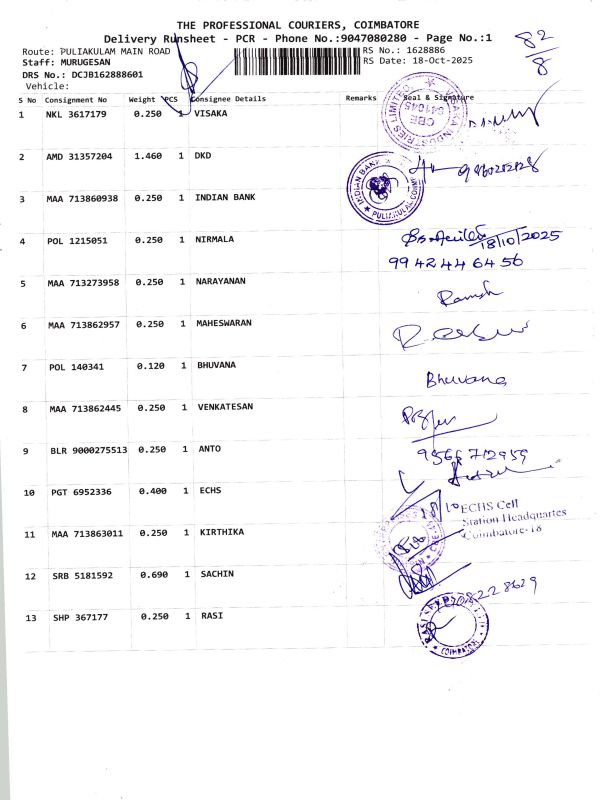 THE PROFESSIONAL COURIERS, COIMBATORE
Delivery Runsheet - PCR - Phone No.:9047080280 - Page No.:1
Route: PULIAKULAM MAIN ROAD
RS No.: 1628886
82/8
Staff: MURUGESAN
RS Date: 18-Oct-2025
DRS No.: DCJB162888601
Vehicle:
S No Consignment No Weight PCS Consignee Details Remarks Seal & Signature
1 NKL 3617179 0.250 1 VISAKA
CBE 641045
2 AMD 31357204 1.460 1 DKD
INDIAN BANK
3 MAA 713860938 0.250 1 INDIAN BANK
4 POL 1215051 0.250 1 NIRMALA
18/10/2025
9942446456
5 MAA 713273958 0.250 1 NARAYANAN
Ramesh
6 MAA 713862957 0.250 1 MAHESWARAN
7 POL 140341 0.120 1 BHUVANA
Bhuvana
8 MAA 713862445 0.250 1 VENKATESAN
9 BLR 9000275513 0.250 1 ANTO
9566712959
10 PGT 6952336 0.400 1 ECHS
18/10
ECHS Cell
Station Headquartes
Coimbatore-18
11 MAA 713863011 0.250 1 KIRTHIKA
12 SRB 5181592 0.690 1 SACHIN
13 SHP 367177 0.250 1 RASI
COIMBATORE